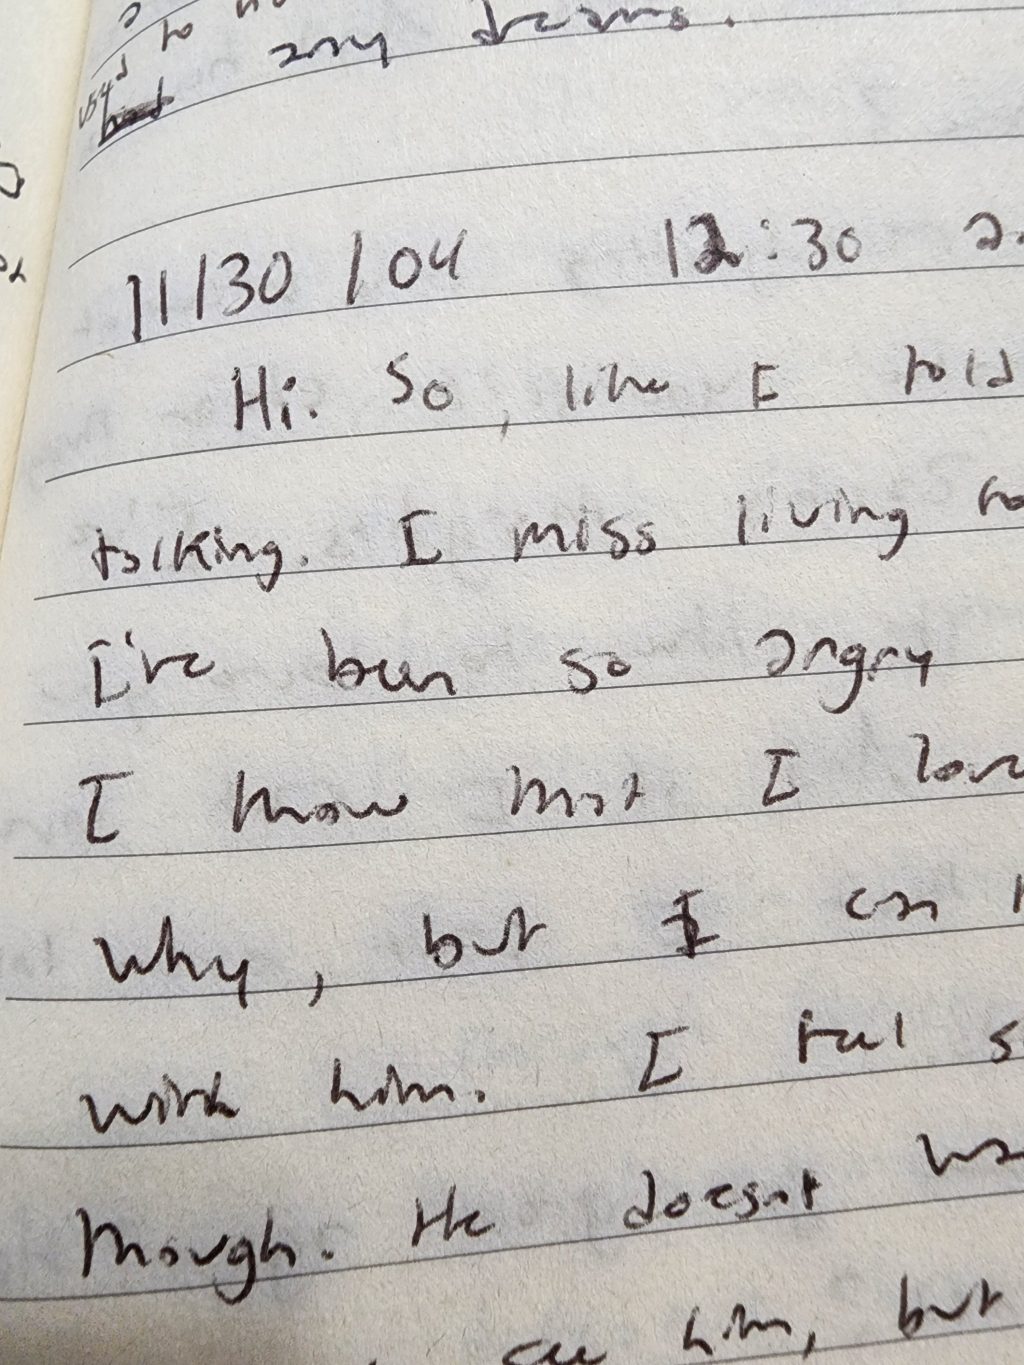 to
any dreams.
used
11/30/04 12:30 a.
Hi. So, like I told
talking. I miss living
I've been so angry
I know that I love
why, but I can
with him. I feel s
though. He doesn't wa
see him, but